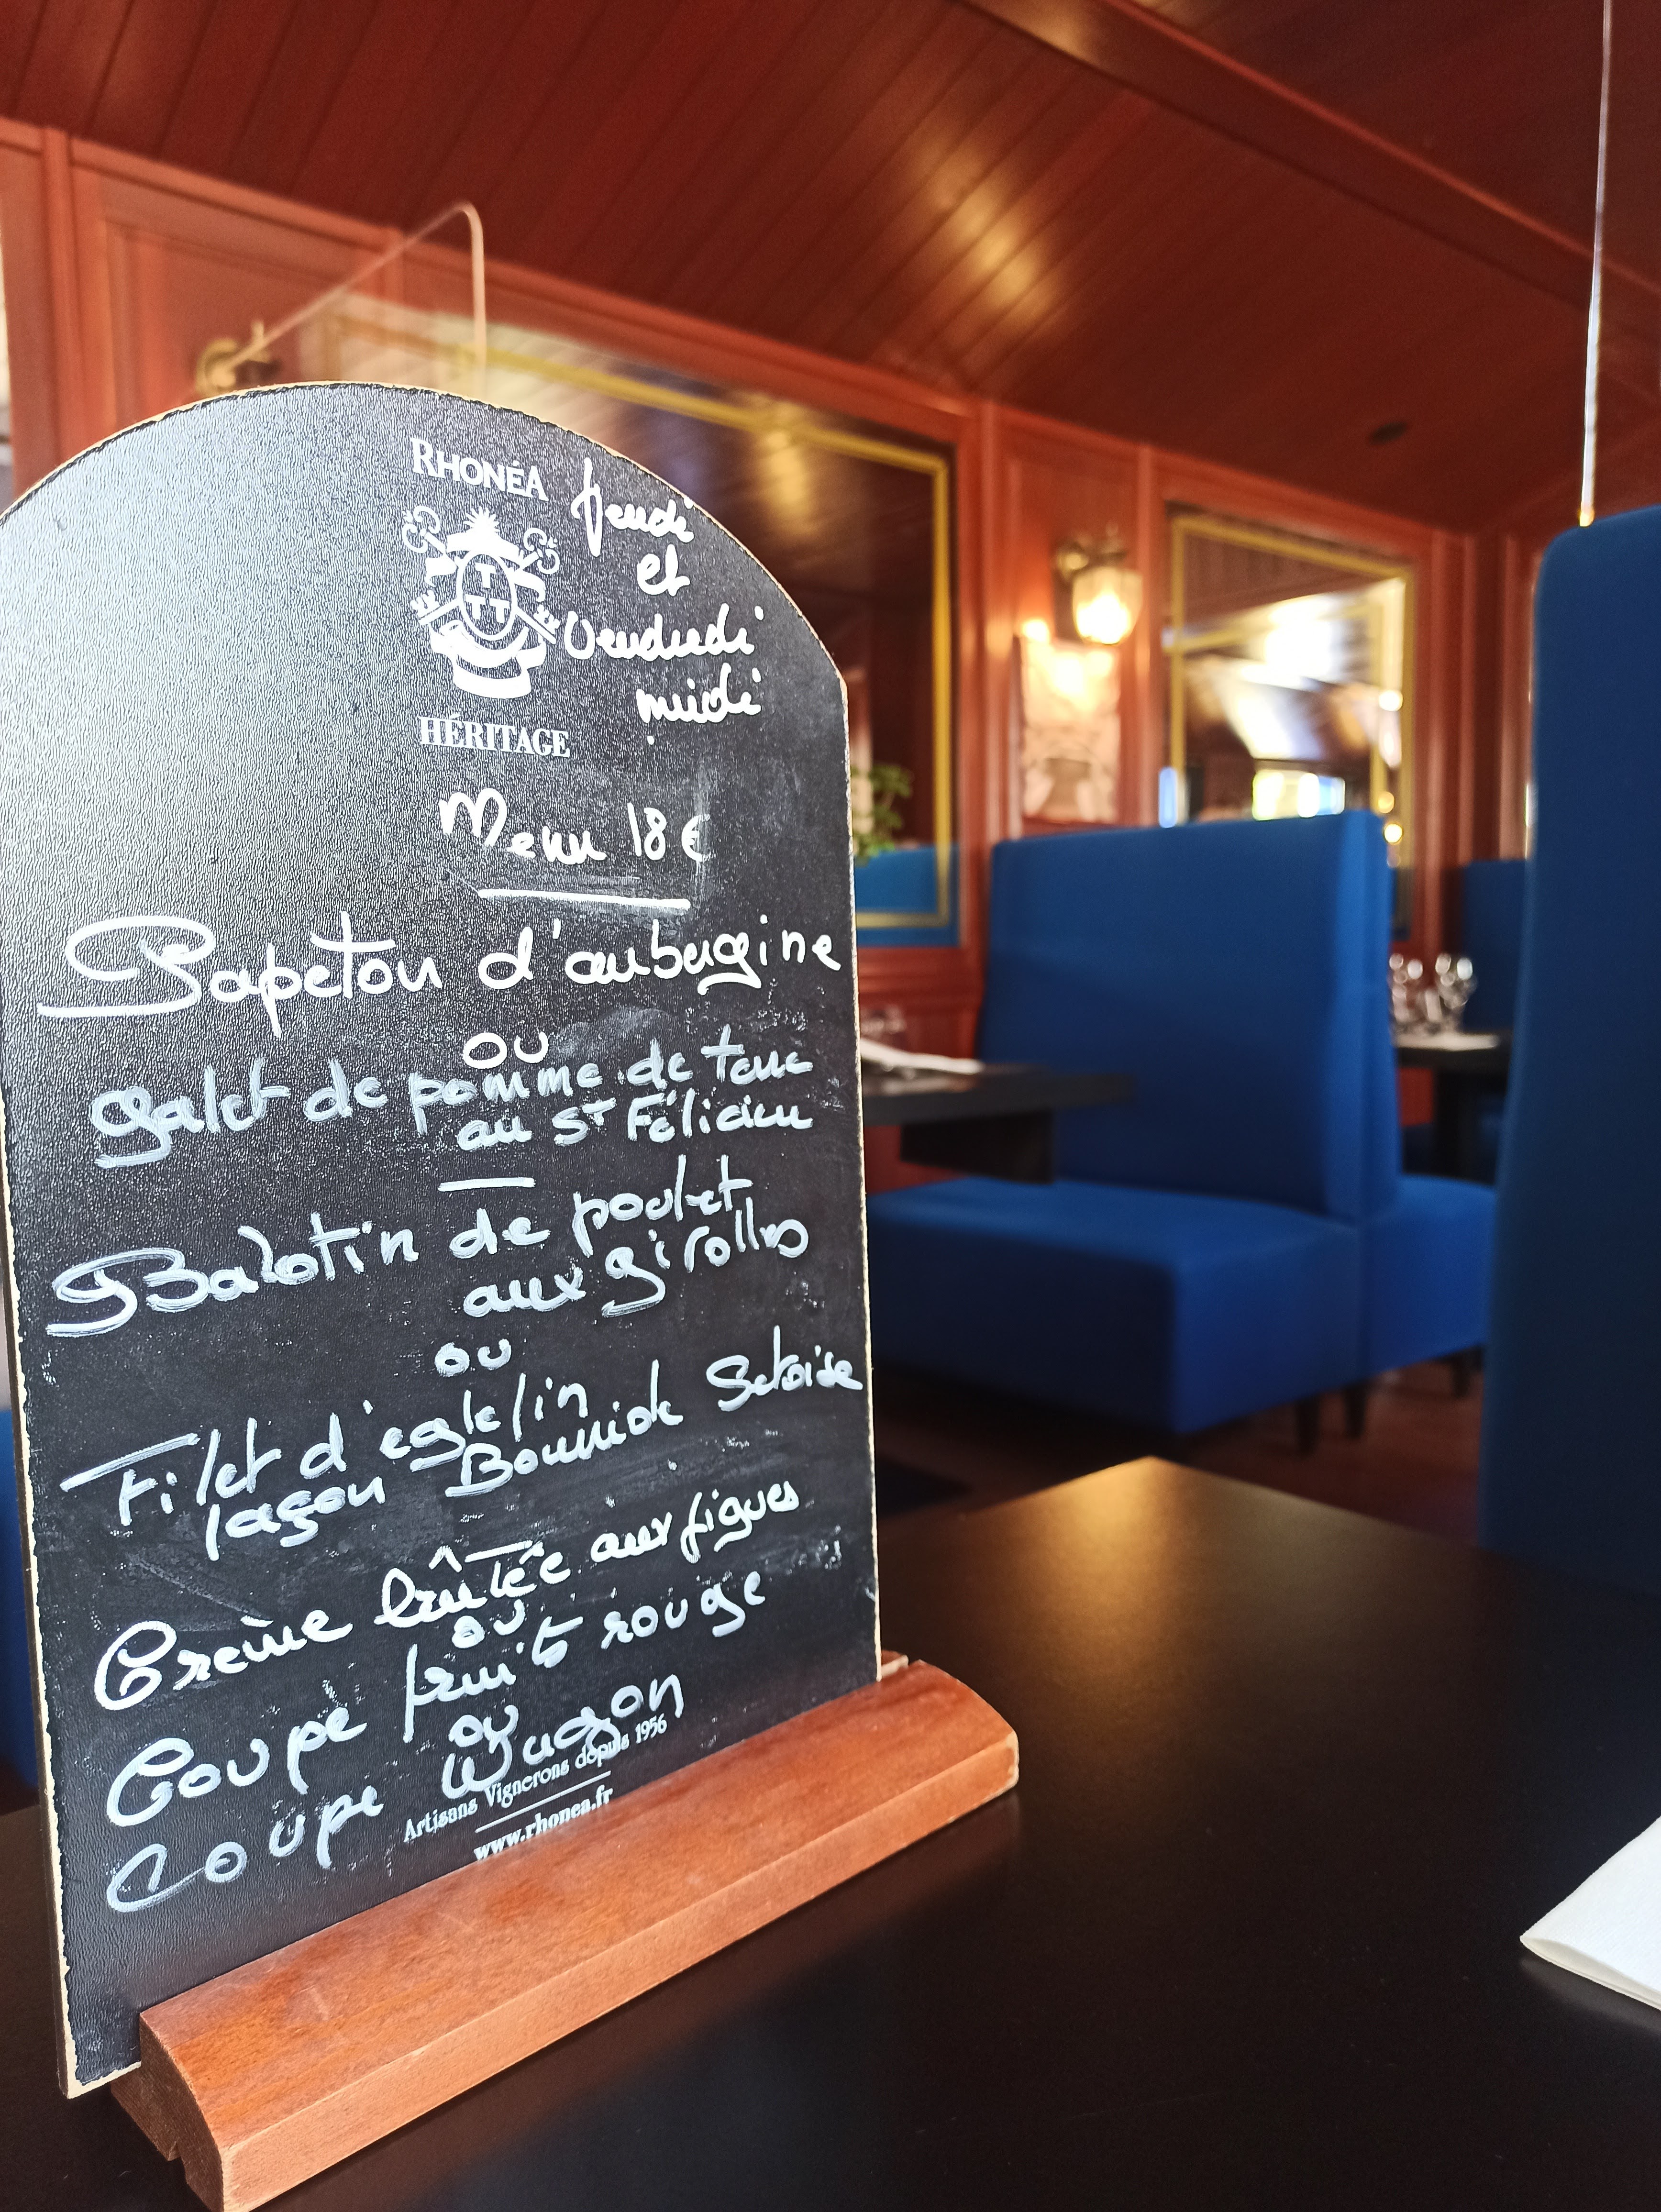 RHONÉA
Jeudi
et
Vendredi
midi
HÉRITAGE
Menu 18€
Papeton d'aubergine
ou
galet de pomme de terre
au St Félicien
Balotin de poulet
aux girolles
ou
Filet d'eglefin
façon Bourride Sétoise
Crème brûtée aux figues
ou
Coupe fruits rouge
ou
Coupe Wagon
Artisans Vignerons depuis 1956
www.rhonea.fr